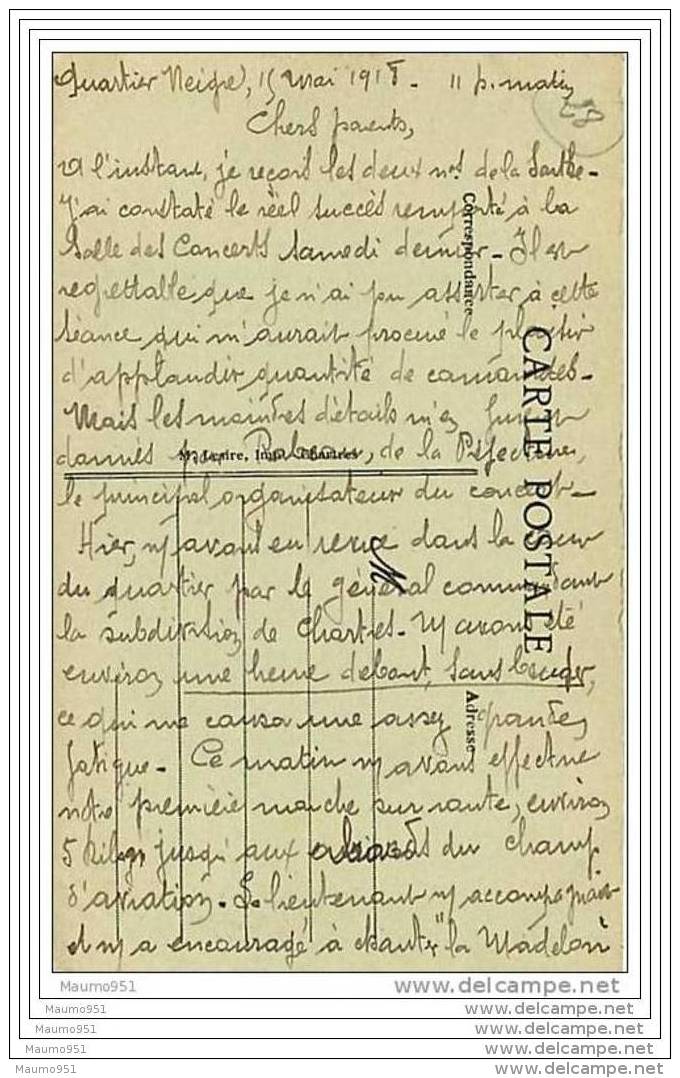 Quartier Neigre, 15 mai 1918 - 11 h. matin
28
Chers parents,
A l'instant, je reçois les deux nos de la Sarthe -
J'ai constaté le réel succès remporté à la
Salle des Concerts samedi dernier - Il est
regrettable que je n'ai pu assister à cette
séance qui m'aurait procuré le plaisir
d'applaudir quantité de camarades -
Mais les moindres détails m'en furent
donnés par de la Préfecture,
le principal organisateur du concert -
Hier, ns avons eu revue dans la cour
du quartier par le général commandant
la subdivision de Chartres - Ns avons été
environ une heure debout, sans bouger,
ce qui me causa une assez grande
fatigue - Ce matin ns avons effectué
notre première marche sur route, environ
5 kilom jusqu'aux abords du champ
d'aviation - Le lieutenant ns accompagnait
et ns a encouragé à chanter "la Madelon"
Correspondance
CARTE POSTALE
Adresse
M
Impr. Chartres
Maumo951
www.delcampe.net
Maumo951
www.delcampe.net
Maumo951
www.delcampe.net
Maumo951
www.delcampe.net
Maumo951
www.delcampe.net